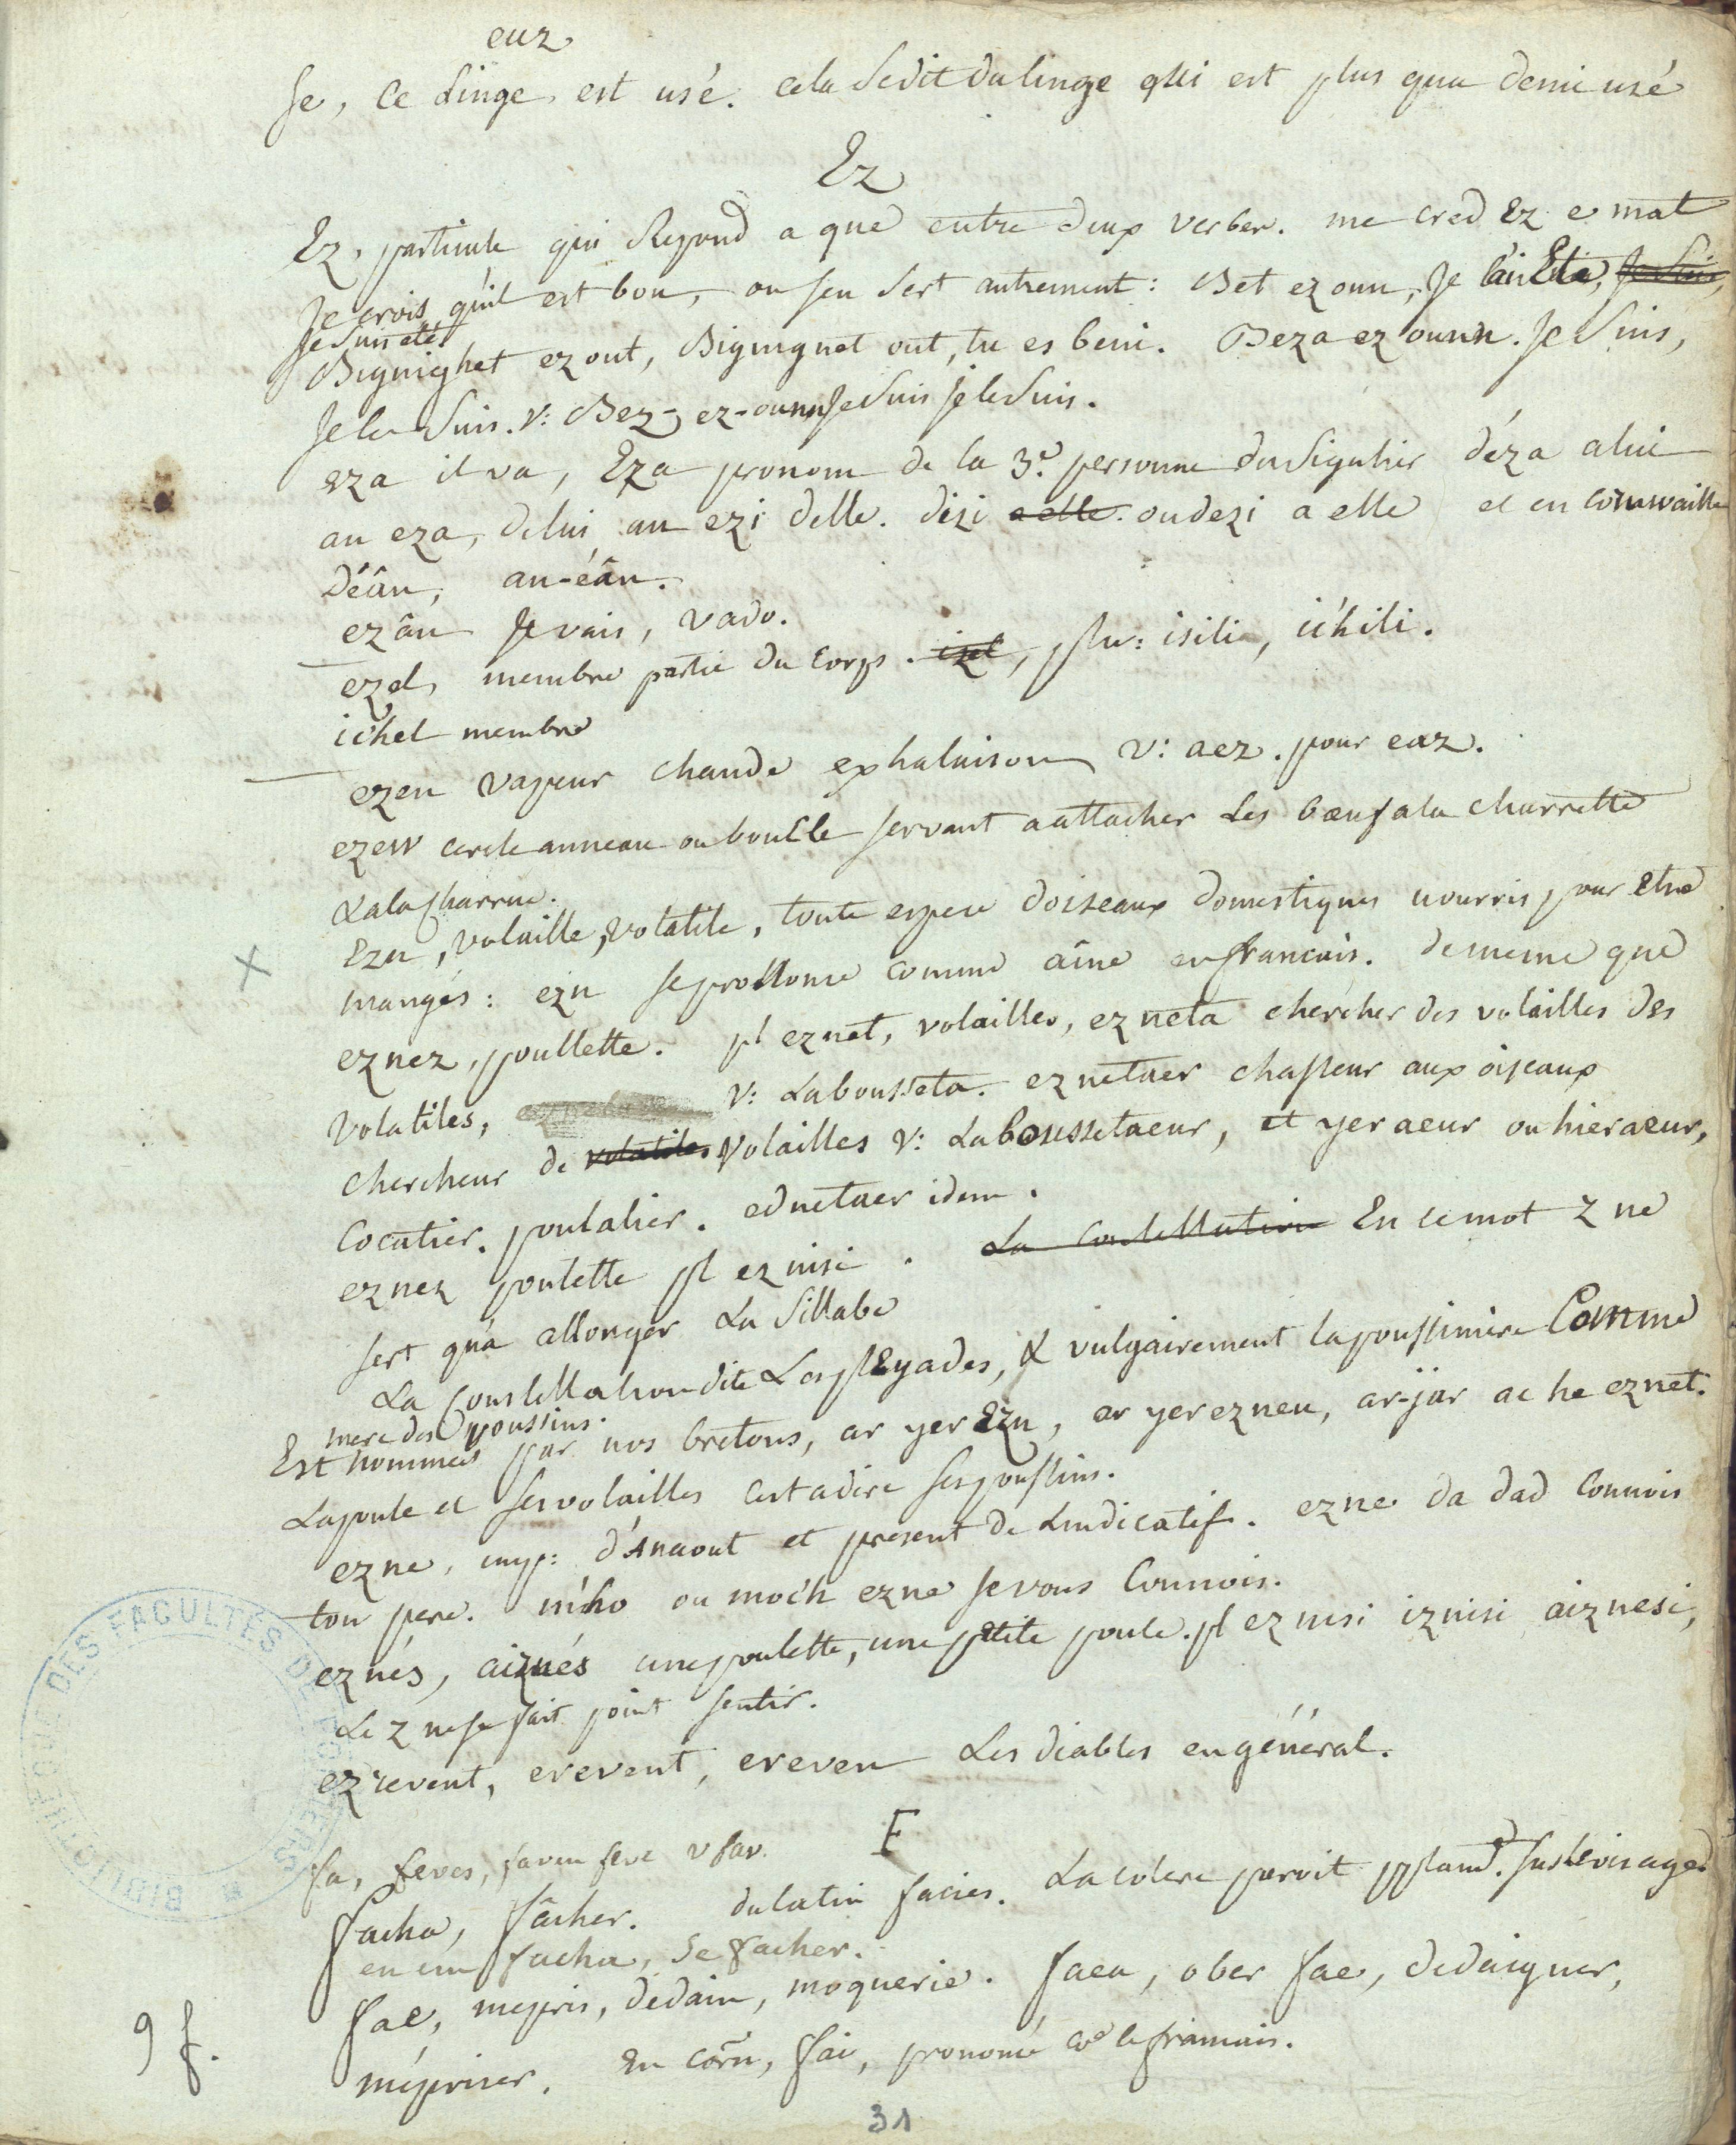 euz
se, ce linge est usé. cela se dit du linge qui est plus qua demi usé
Ez
Ez, particule qui Repond a que entre deux verbes. me cred Ez e mat
Je crois qu'il est bon, on sen sert autrement: Bet ezoun, Je l'ai Eté, Je suis,
Je suis eté
Bignighet ez out, Biguignet out, tu es beni. Beza ez ounn. Je suis,
Je le suis. v: Bez, ez-ounn Je suis je le suis.
eza il va, Eza pronom de la 3.e personne du Sigulier déza a lui
an eza, de lui an ezi delle. dezi a elle. ou dezi a elle et en cornwaille
Déân, an-éân.
ezân Je vais, vado.
ezel, membre partie du Corps. izel, plu: isili, ic'hili.
ic'hel membre
ezen vapeur chaude exhalaison v: aez. pour eaz.
ezew cercle anneau ou boucle servant a attacher Les bœuf a la charrette
& a la charrue.
Ezn, volaille, volatile, toute espece d'oiseaux domestiques nourris pour etre
mangés: ezn se prononce comme aîne en francais. de meme que
eznez, poullette. pl eznet, volailles, ezneta chercher des volailles des
volatiles, v: Labousseta. eznetaer chasseur aux oiseaux
chercheur de volatiles volailles v: Laboussetaeur, et yeraeur ou hieraeur,
Cocatier. poulalier. ednetaer idem.
eznez poulette pl eznisi. La Constellation En ce mot Z ne
sert qu'a allonger La Sillabe
La Constellation dite Les pleyades, & vulgairement la poussiniere Comme
mere des poussins.
Est nommés par nos bretons, ar yer Ezn, ar yer eznen, ar-jar ac he eznet.
La poule et ses volailles c'est a dire ses poussins.
ezne, imp: d'Anaout et present de L'indicatif. ezne da dad Connois
ton pere. m'ho ou moc'h ezne Je vous Connois.
eznés, aiznés une poulette, une petite poule. pl eznisi iznisi aiznesi,
Le Z ne se fait point sentir.
ezrevent, erevent, ereven Les diables en général.
F
fa, feves, faven feve v fav.
facha, fâcher. du latin facies. La colere paroit sur le visage
en em facha, se facher.
fae, mepris, dédain, moquerie. faea, ober fae, dedaigner,
mépriser. En corn, fai, pronomé co.e le francais.
9 f.
31
BIBLIOTHEQUE DES FACULTES DE POITIERS